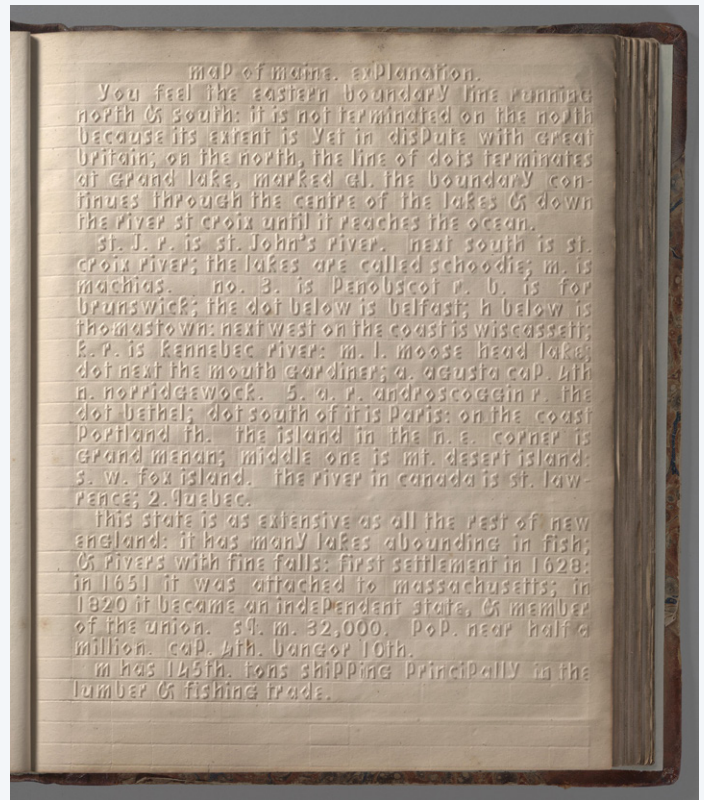 map of maine. explanation.
you feel the eastern boundary line running
north & south: it is not terminated on the north
because its extent is yet in dispute with great
britain; on the north, the line of dots terminates
at grand lake, marked gl. the boundary con-
tinues through the centre of the lakes & down
the river st croix until it reaches the ocean.
st. j. r. is st. john's river. next south is st.
croix river; the lakes are called schoodie; m. is
machias. no. 3. is penobscot r. b. is for
brunswick; the dot below is belfast; h below is
thomastown: next west on the coast is wiscassett;
k. r. is kennebec river: m. l. moose head lake;
dot next the mouth gardiner; a. agusta cap. 4th
n. norridgewock. 5. a. r. androscoggin r. the
dot bethel; dot south of it is paris: on the coast
portland th. the island in the n. e. corner is
grand menan; middle one is mt. desert island:
s. w. fox island. the river in canada is st. law-
rence; 2. quebec.
this state is as extensive as all the rest of new
england: it has many lakes abounding in fish;
& rivers with fine falls: first settlement in 1628:
in 1651 it was attached to massachusetts; in
1820 it became an independent state, & member
of the union. sq. m. 32,000. pop. near half a
million. cap. 4th. bangor 10th.
m has 145th. tons shipping principally in the
lumber & fishing trade.